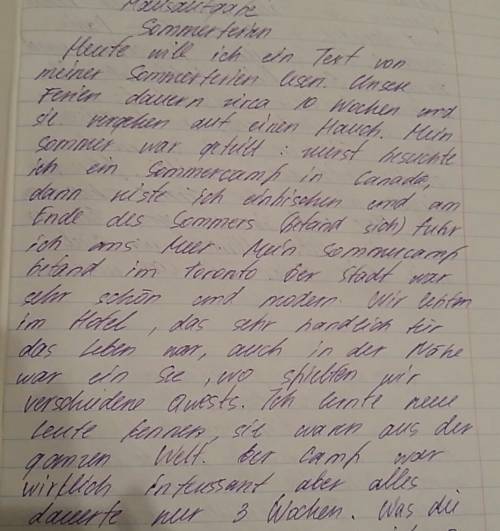 Hausaufgabe
Sommerferien
Heute will ich ein Text von
meiner Sommerferien lesen. Unsere
Ferien dauern zirca 10 Wochen und
sie vergehen auf einen Hauch. Mein
Sommer war geteilt: zuerst besuchte
ich ein Sommercamp in Canada,
dann reiste ich einbischen und am
Ende des Sommers (befand sich) fuhr
ich ans Meer. Mein Sommercamp
befand im Toronto. Der Stadt war
sehr schön und modern. Wir lebten
im Hotel, das sehr handlich für
das Leben war, auch in der Nähe
war ein See, wo spielten wir
verschidene Quests. Ich lernte neue
Leute kennen, sie waren aus der
ganzen Welt. Der Camp war
wirklich interessant aber alles
dauerte nur 3 Wochen. Was die